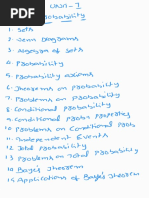 UNIT-I
Probability
1. Sets
2. Venn Diagrams
3. Algebra of Sets
4. Probability
5. Probability axioms
6. Theorems on Probability
7. Problems on Probability
8. Conditional Probability
9. Conditional Probs Properties
10. Problems on Conditional Probs
11. Independent Events
12. Total Probability
13. Problems on Total Probability
14. Baye's Theorem
15. Applications of Baye's Theorem